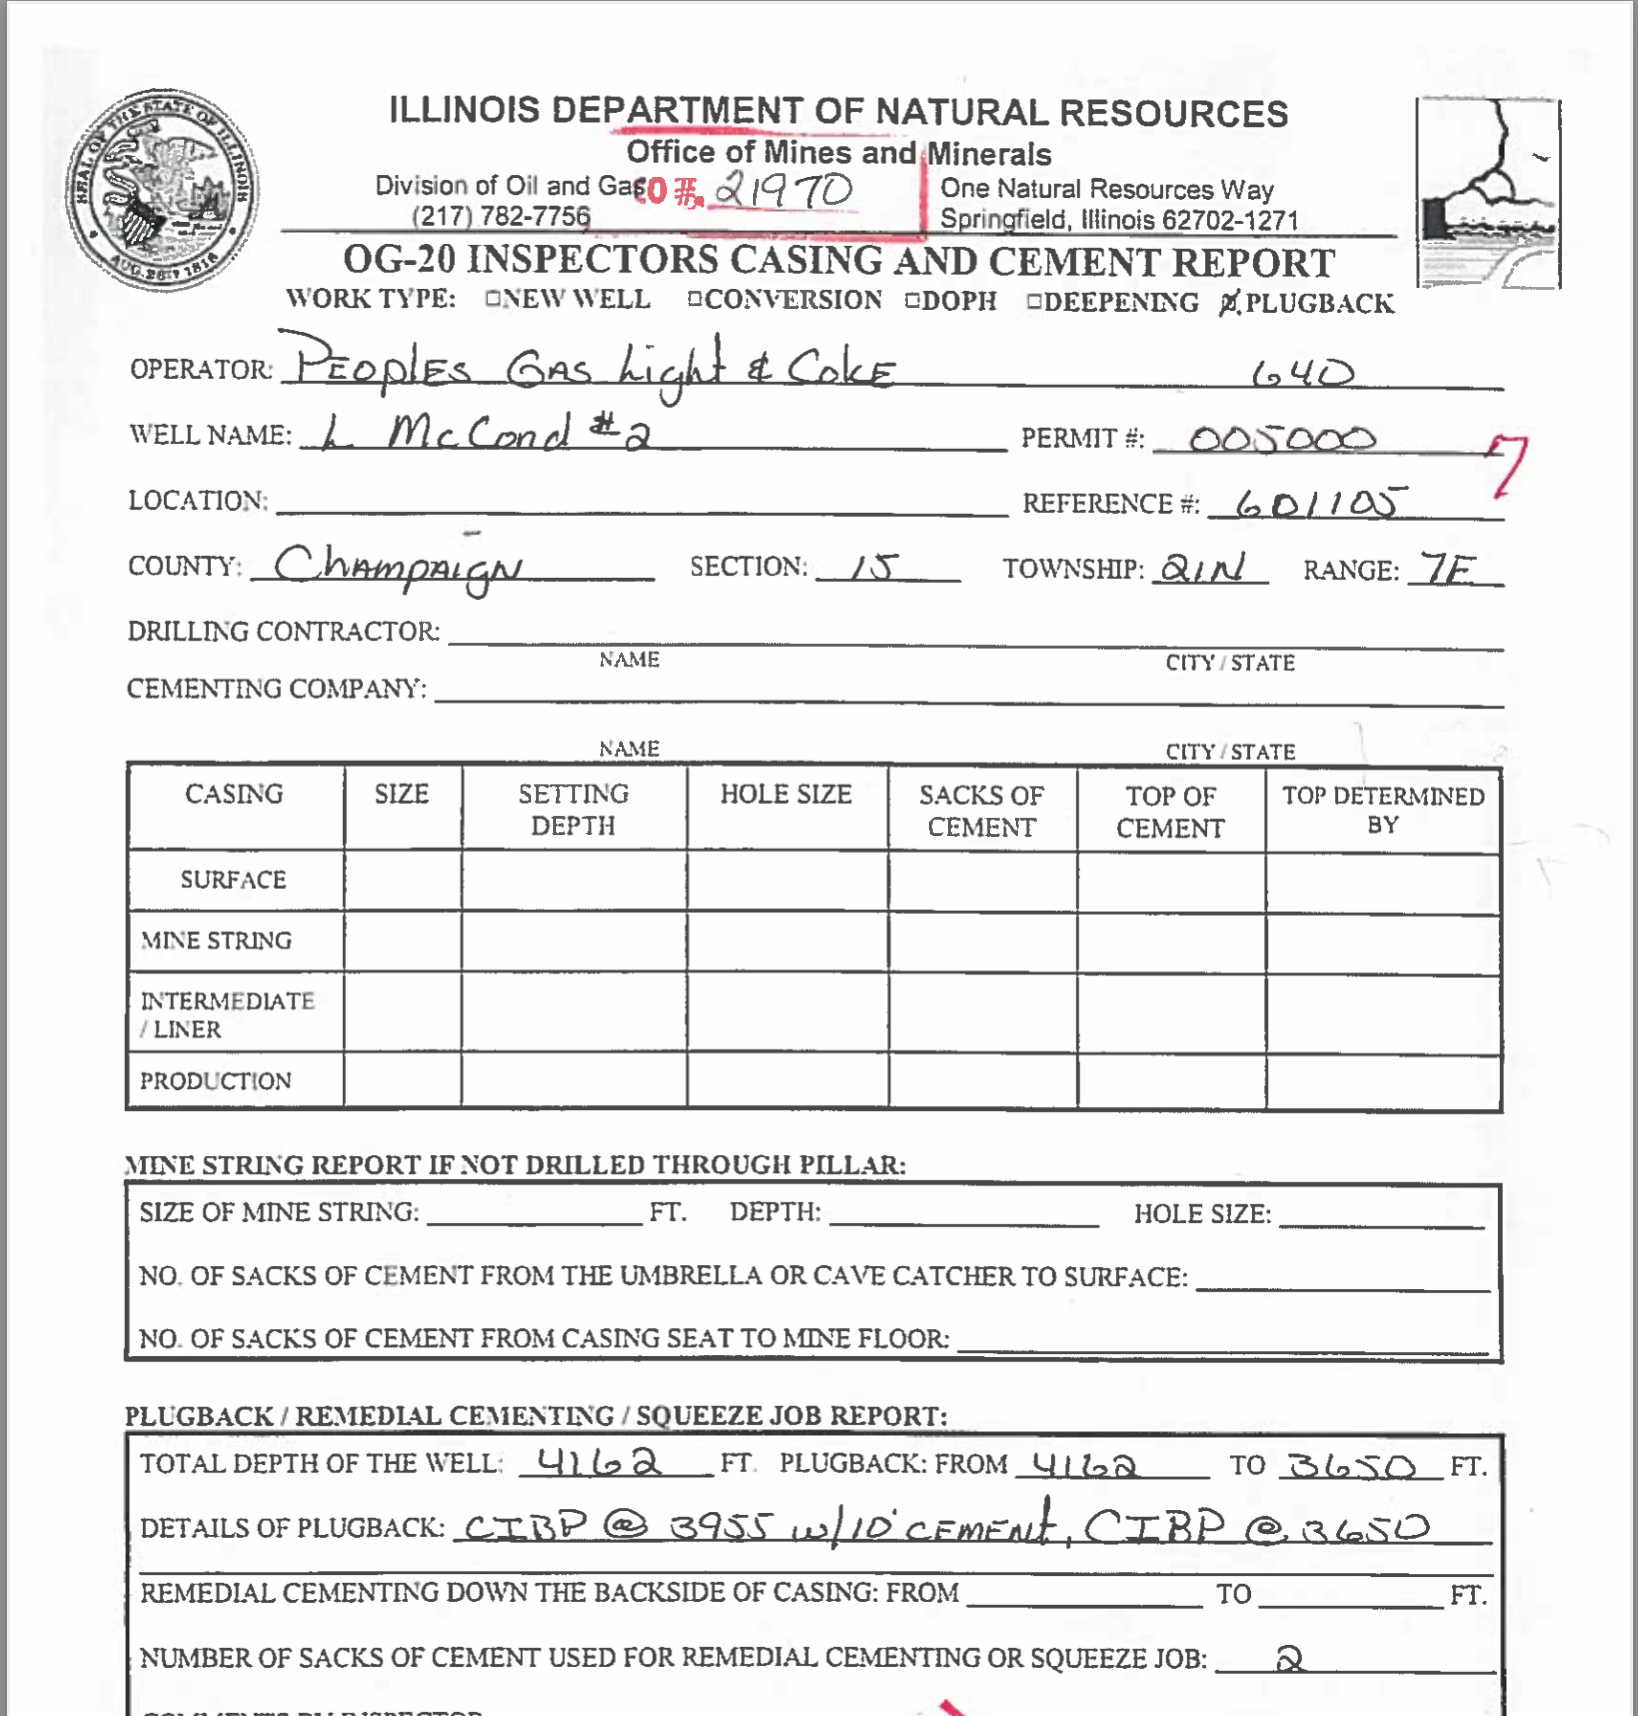 SEAL OF THE STATE OF ILLINOIS
AUG. 26TH 1818
ILLINOIS DEPARTMENT OF NATURAL RESOURCES
Office of Mines and Minerals
Division of Oil and Gas CO #. 21970 One Natural Resources Way
(217) 782-7756 Springfield, Illinois 62702-1271
OG-20 INSPECTORS CASING AND CEMENT REPORT
WORK TYPE: □NEW WELL □CONVERSION □DOPH □DEEPENING ☒PLUGBACK
OPERATOR: Peoples Gas Light & Coke 640
WELL NAME: L McCond #2 PERMIT #: 005000
7
LOCATION: REFERENCE #: 601105
COUNTY: Champaign SECTION: 15 TOWNSHIP: 21N RANGE: 7E
DRILLING CONTRACTOR:
NAME CITY / STATE
CEMENTING COMPANY:
NAME CITY / STATE
CASING SIZE SETTING DEPTH HOLE SIZE SACKS OF CEMENT TOP OF CEMENT TOP DETERMINED BY
SURFACE
MINE STRING
INTERMEDIATE / LINER
PRODUCTION
MINE STRING REPORT IF NOT DRILLED THROUGH PILLAR:
SIZE OF MINE STRING: FT. DEPTH: HOLE SIZE:
NO. OF SACKS OF CEMENT FROM THE UMBRELLA OR CAVE CATCHER TO SURFACE:
NO. OF SACKS OF CEMENT FROM CASING SEAT TO MINE FLOOR:
PLUGBACK / REMEDIAL CEMENTING / SQUEEZE JOB REPORT:
TOTAL DEPTH OF THE WELL: 4162 FT. PLUGBACK: FROM 4162 TO 3650 FT.
DETAILS OF PLUGBACK: CIBP @ 3955 w/10' CEMENT, CIBP @ 3650
REMEDIAL CEMENTING DOWN THE BACKSIDE OF CASING: FROM TO FT.
NUMBER OF SACKS OF CEMENT USED FOR REMEDIAL CEMENTING OR SQUEEZE JOB: 2